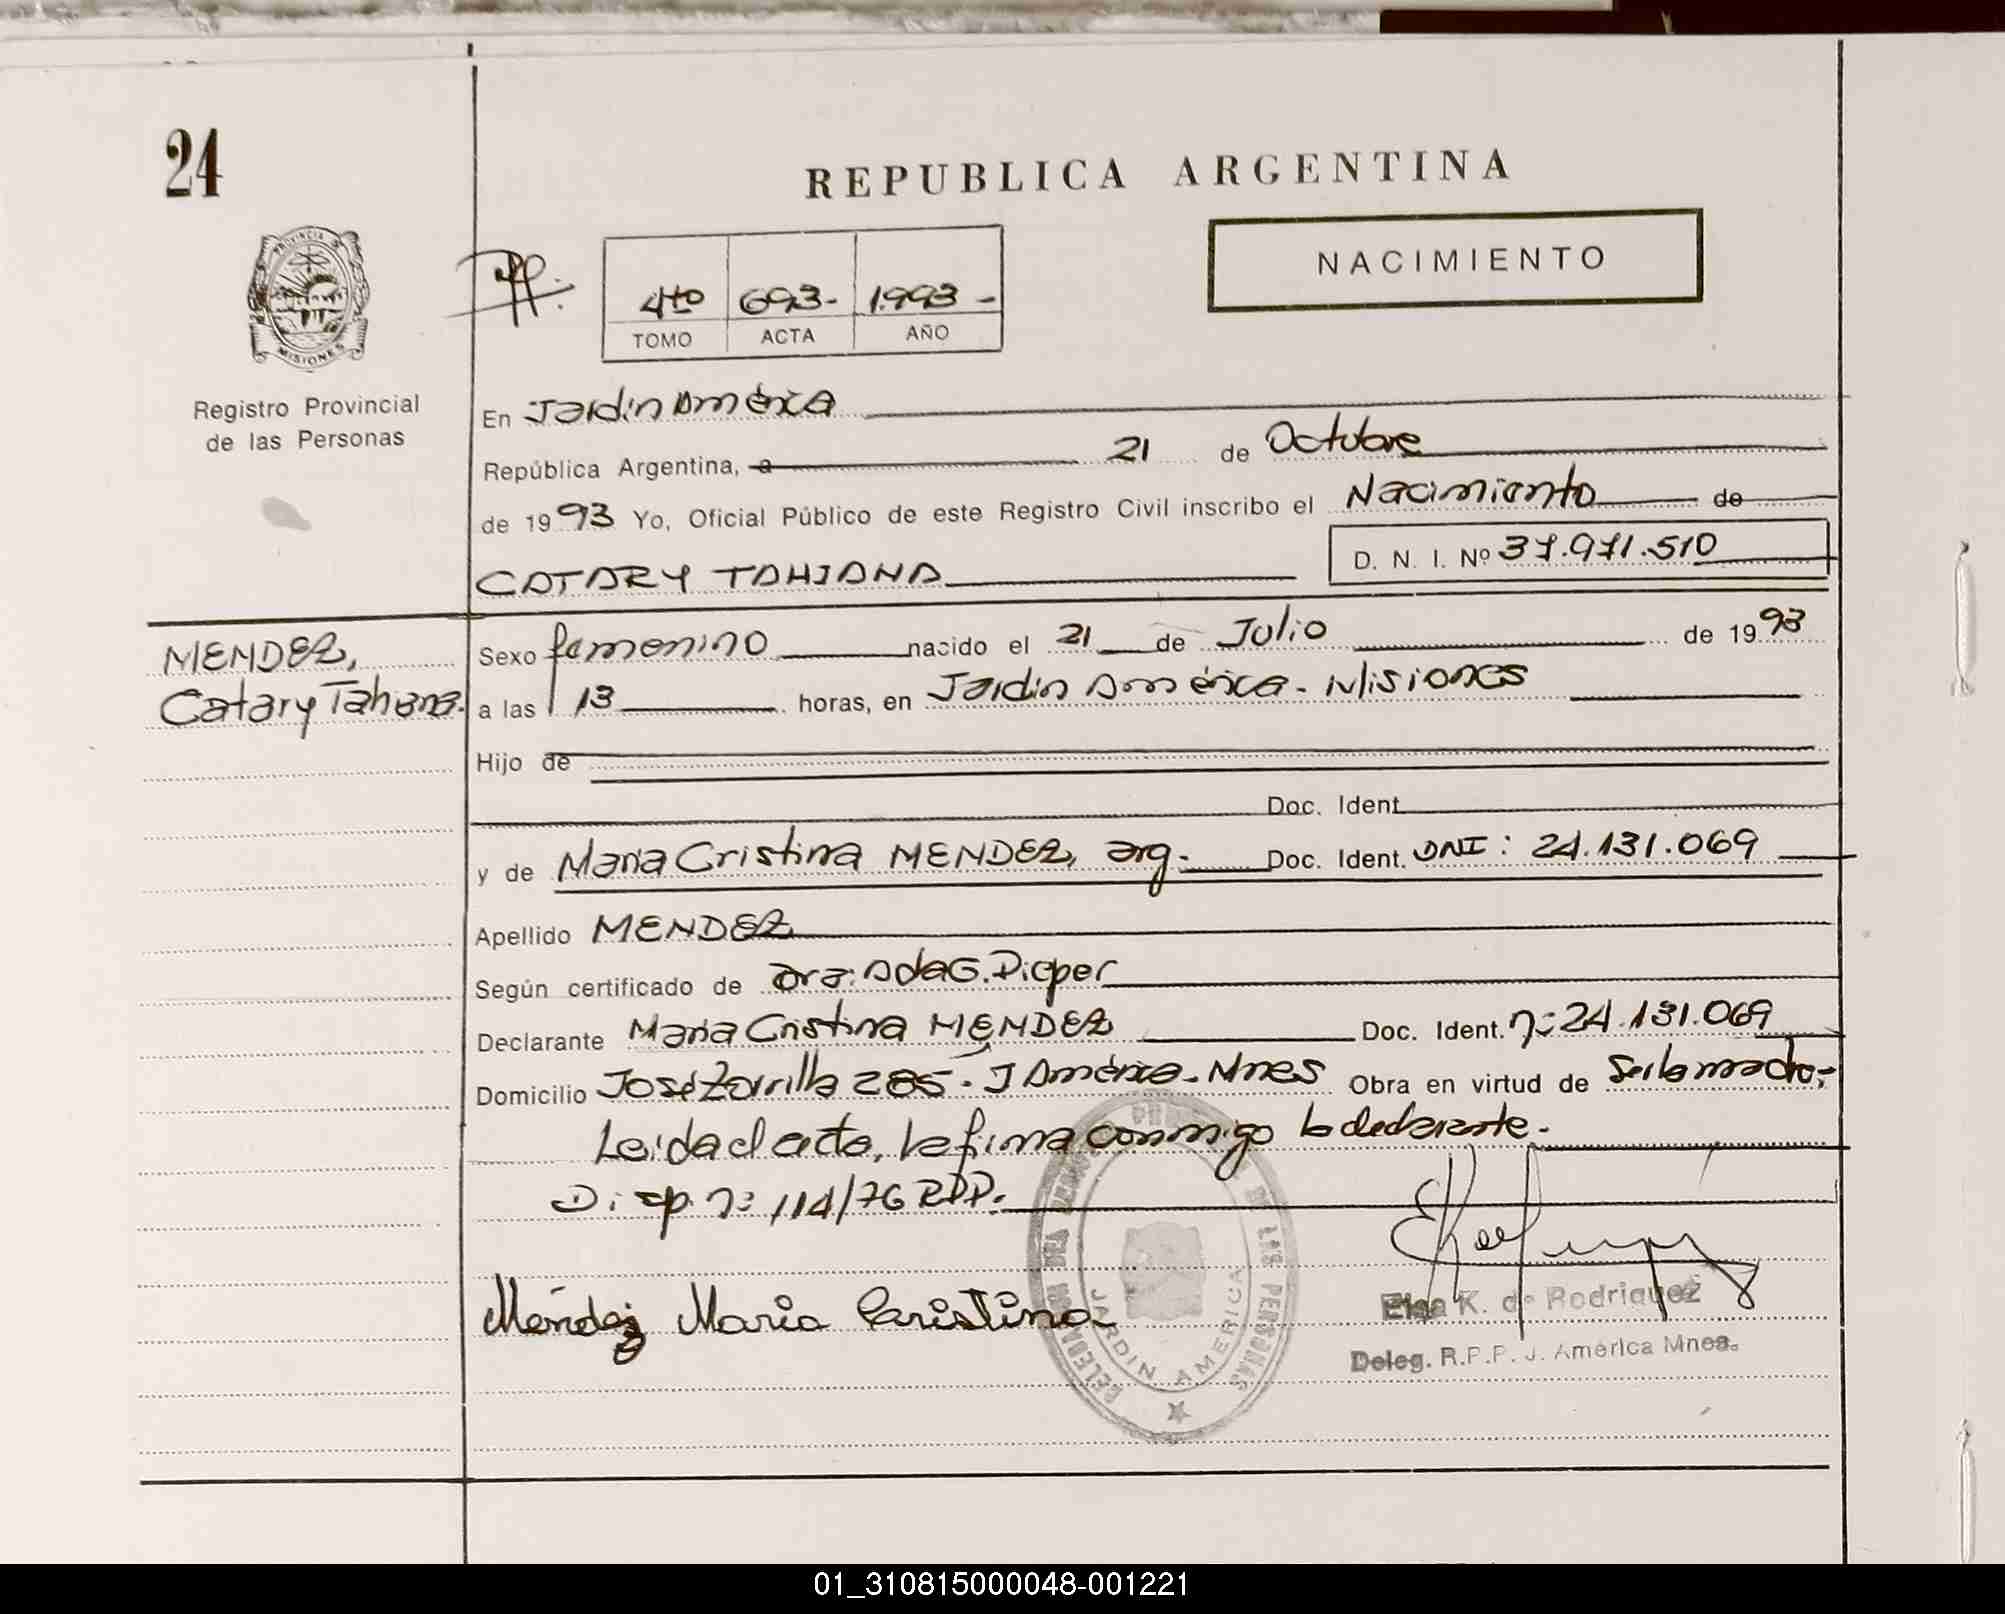 24
REPUBLICA ARGENTINA
NACIMIENTO
PROVINCIA DE
MISIONES
4to 693- 1.993-
TOMO ACTA AÑO
Registro Provincial
de las Personas
En Jardin América
República Argentina, a 21 de Octubre
de 1993 Yo, Oficial Público de este Registro Civil inscribo el Nacimiento de
CATARY TAHIANA D. N. I. Nº 37.971.510
MENDEZ,
Catary Tahiana.
Sexo femenino nacido el 21 de Julio de 1993
a las 13 horas, en Jardin América - Misiones
Hijo de
Doc. Ident.
y de Maria Cristina MENDEZ, arg. Doc. Ident. DNI: 24.131.069
Apellido MENDEZ
Según certificado de Dra: Ada G. Dieper
Declarante Maria Cristina MENDEZ Doc. Ident. n: 24.131.069
Domicilio José Zorrilla 285 - J América - Mnes Obra en virtud de Ser la madre,-
Leida el acta, la firma conmigo la declarante.-
Disp. n: 114/76 RPP.
Mendez Maria Cristina
DE LAS PERSONAS
JARDIN AMERICA
Elsa K. de Rodriguez
Deleg. R.P.P. J. América Mnes.
01_310815000048-001221